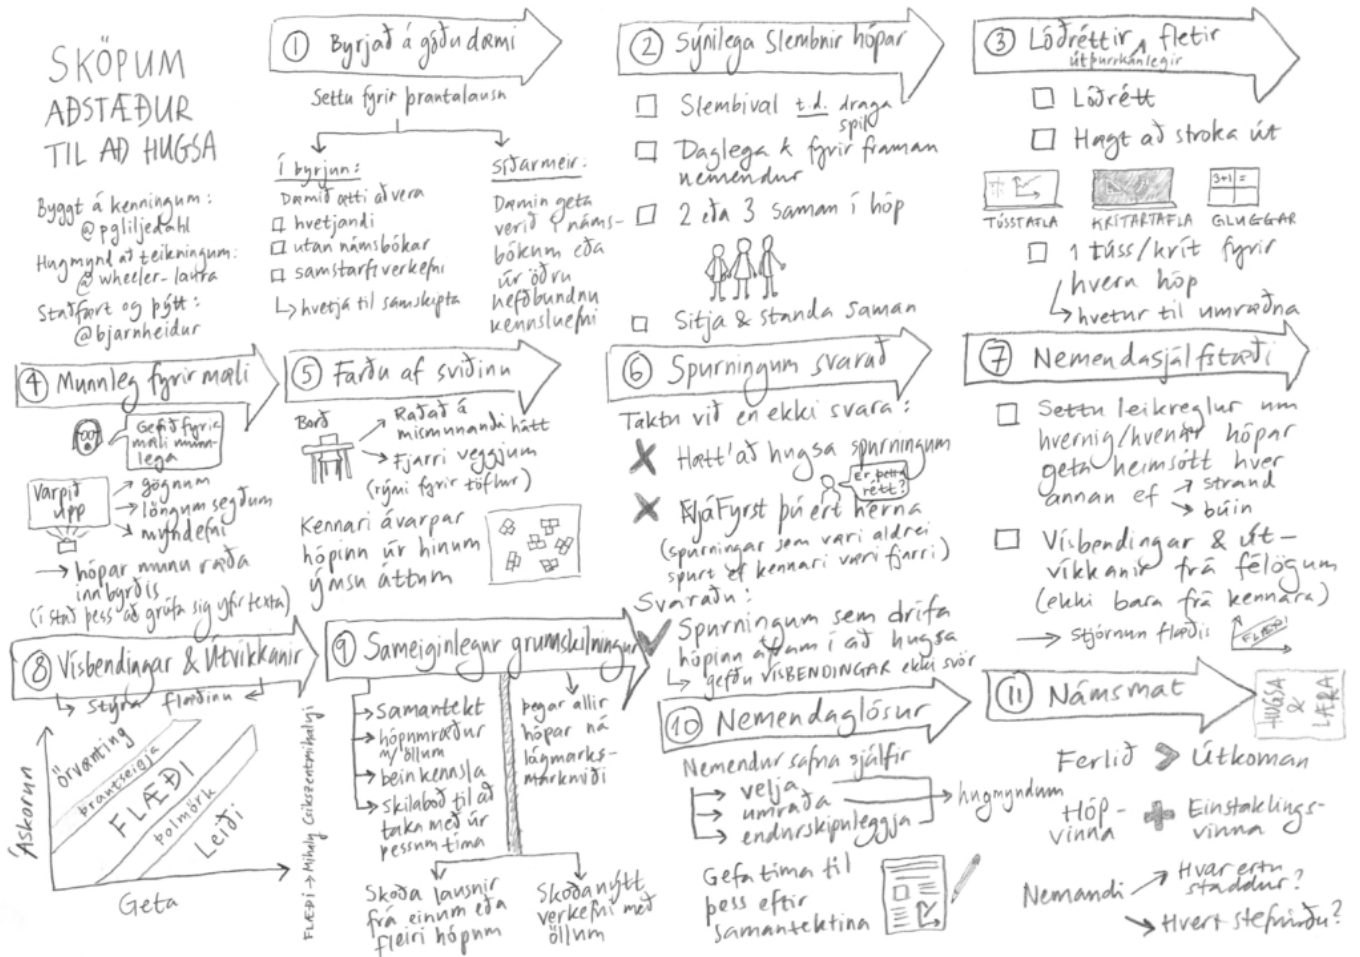 SKÖPUM
AÐSTÆÐUR
TIL AÐ HUGSA
Byggt á kenningum:
@pgliljedahl
Hugmynd að teikningum:
@wheeler_laura
Staðfært og þýtt:
@bjarnheidur
1 Byrjað á góðu dæmi
Settu fyrir þrautalausn
Í byrjun:
Dæmið ætti að vera
hvetjandi
utan námsbókar
samstarfsverkefni
hvetja til samskipta
Síðarmeir:
Dæmin geta
verið í náms-
bókum eða
úr öðru
hefðbundnu
kennsluefni
2 Sýnilega Slembnir hópar
Slembival t.d. draga
spil
Daglega & fyrir framan
nemendur
2 eða 3 saman í hóp
Sitja & standa saman
3 Lóðréttir fletir
útþurrkanlegir
Lóðrétt
Hægt að stroka út
3+1 =
TÚSSTAFLA KRÍTARTAFLA GLUGGAR
1 túss/krít fyrir
hvern hóp
hvetur til umræðna
4 Munnleg fyrirmæli
Gefið fyrir-
mæli munn-
lega
Varpið
upp
gögnum
löngum segðum
myndefni
hópar munu ræða
innbyrðis
(í stað þess að grúfa sig yfir texta)
5 Farðu af sviðinu
Borð
Raðað á
mismunandi hátt
Fjarri veggjum
(rými fyrir töflur)
Kennari ávarpar
hópinn úr hinum
ýmsu áttum
6 Spurningum svarað
Taktu við en ekki svara:
Hætt'að hugsa spurningum
Er þetta
rétt?
Fyrst þú ert hérna
(spurningar sem væri aldrei
spurt ef kennari væri fjarri)
Svaraðu:
Spurningum sem drífa
hópinn áfram í að hugsa
gefðu VÍSBENDINGAR ekki svör
7 Nemendasjálfstæði
Settu leikreglur um
hvernig/hvenær hópar
geta heimsótt hver
annan ef strand
búin
Vísbendingar & Út-
víkkanir frá félögum
(ekki bara frá kennara)
Stjórnun flæðis
FLÆÐI
8 Vísbendingar & Útvíkkanir
Stýra flæðinu
Áskorun
Örvænting
Þrautseigja
FLÆÐI
Þolmörk
Leiði
Geta
FLÆÐI → Mihaly Csikszentmihalyi
9 Sameiginlegur grunnskilningur
Samantekt
hópumræður
m/öllum
bein kennsla
skilaboð til að
taka með úr
þessum tíma
þegar allir
hópar ná
lágmarks-
markmiði
Skoða lausnir
frá einum eða
fleiri hópum
Skoða nýtt
verkefni með
öllum
10 Nemendaglósur
Nemendur safna sjálfir
velja
umraða
endurskipuleggja
hugmyndum
Gefa tíma til
þess eftir
samantektina
11 Námsmat
HUGSA
&
LÆRA
Ferlið > Útkoman
Hóp-
vinna
+ Einstaklings-
vinna
Nemandi
Hvar ertu
staddur?
Hvert stefnirðu?